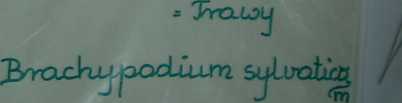 = Trawy
Brachypodium sylvaticum